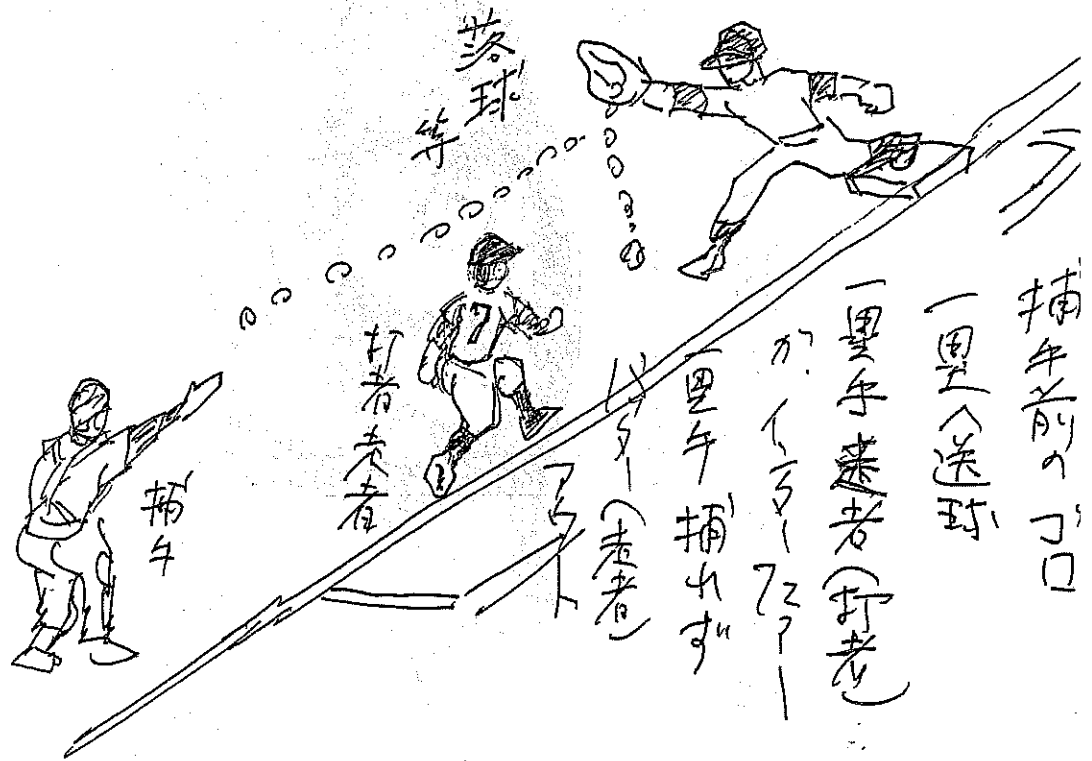 捕手前のゴロ
一塁へ送球
一塁手走者(打者)
が、インターフェアー
一塁手捕れず
バッター(走者)
アウト
落球
等
打者走者
捕手